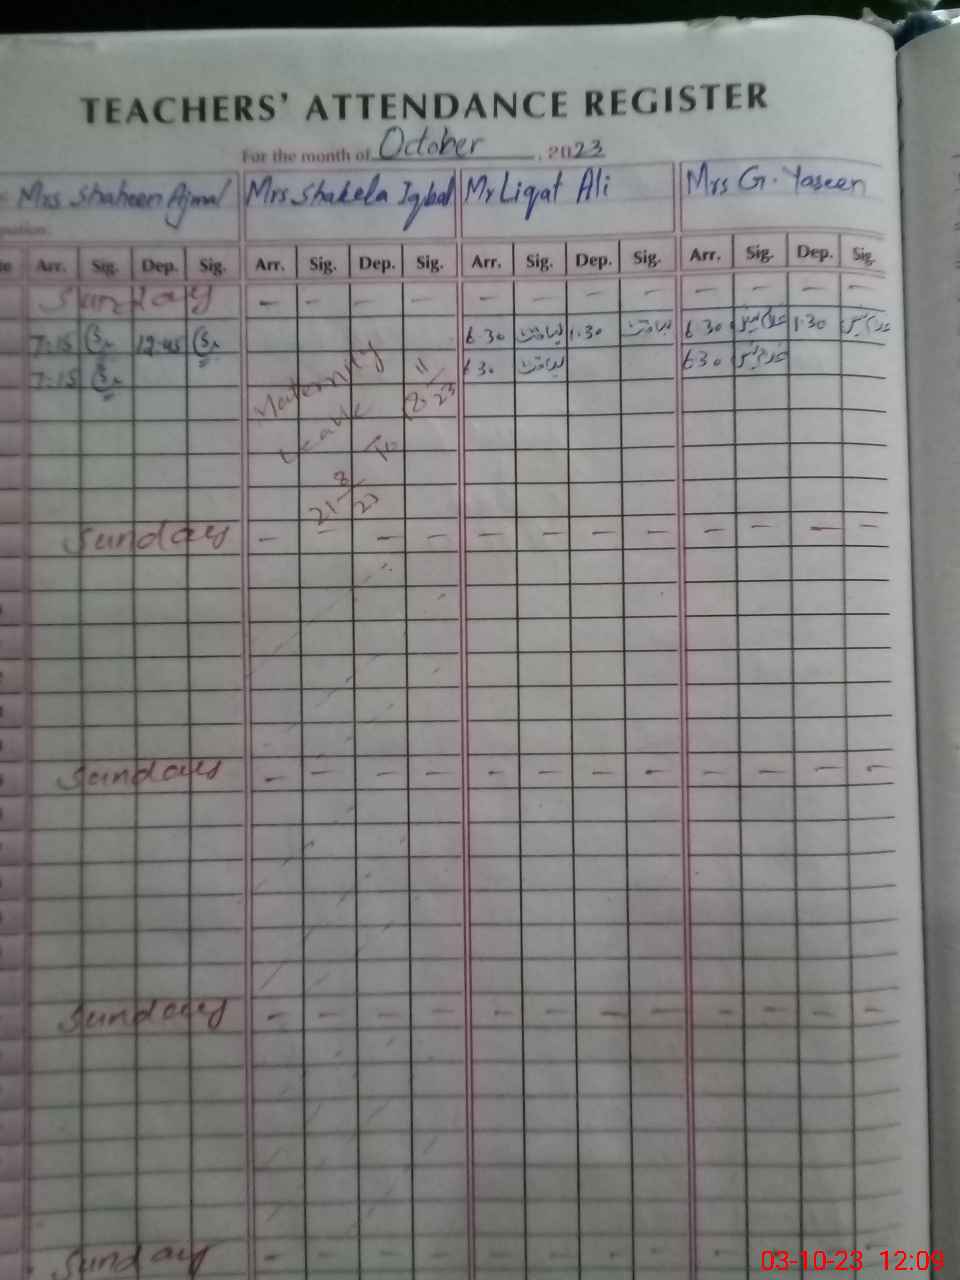 TEACHERS' ATTENDANCE REGISTER
For the month of October, 2023
Mrs Shaheen Ajmal Mrs Shakela Iqbal Mr Liqat Ali Mrs G. Yaseen
Arr. Sig. Dep. Sig. Arr. Sig. Dep. Sig. Arr. Sig. Dep. Sig. Arr. Sig. Dep. Sig.
Sunday - - - - - - - - - - - -
7:15 12:45 6 30 لیاقت 1.30 لیاقت 6 30 1.30
7:15 6 30 لیاقت 6 30
Maternity
Leave
21 8/23 To 18 11/23
Sunday - - - - - - - - - - - -
Sunday - - - - - - - - - - - -
Sunday - - - - - - - - - - - -
Sunday - - - - - - -
03-10-23 12:09